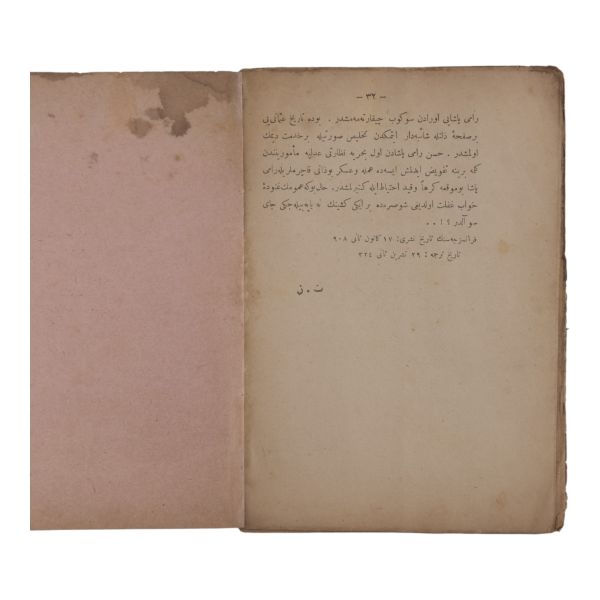 — ٣٢ —
راسمی پاشایی اورادن سوكوب چیقارته‌مه‌مشدر . بوده تاریخ عثمانی‌یی
بر صفحهٔ ذلتله شائبه‌دار ایتمكدن تخلیص صورتیله برخدمت دیمك
اولمشدر . حسن رامی پاشادن اول بحریه نظارتی عدلیه مأموریتندن
برینه تفویض ایدلمش ایسه‌ده عمله وعسكر بوذاتی قاچرمه‌لریله رامی
پاشا بوموقعه كرهاً وقید احتیاطله كتیرلمشدر . حال بوكه عمومك
خواب غفلت اولدیغی شو صره‌ده بر ایكی كشینك نه یاپه‌بیله‌جكی جای
سوآلدر ؟ ! . .
فرانسزجه‌سنك تاریخ نشری : ١٧ كانون ثانی ٩٠٨
تاریخ ترجمه : ٢٩ تشرین ثانی ٣٢٤
ت . ن